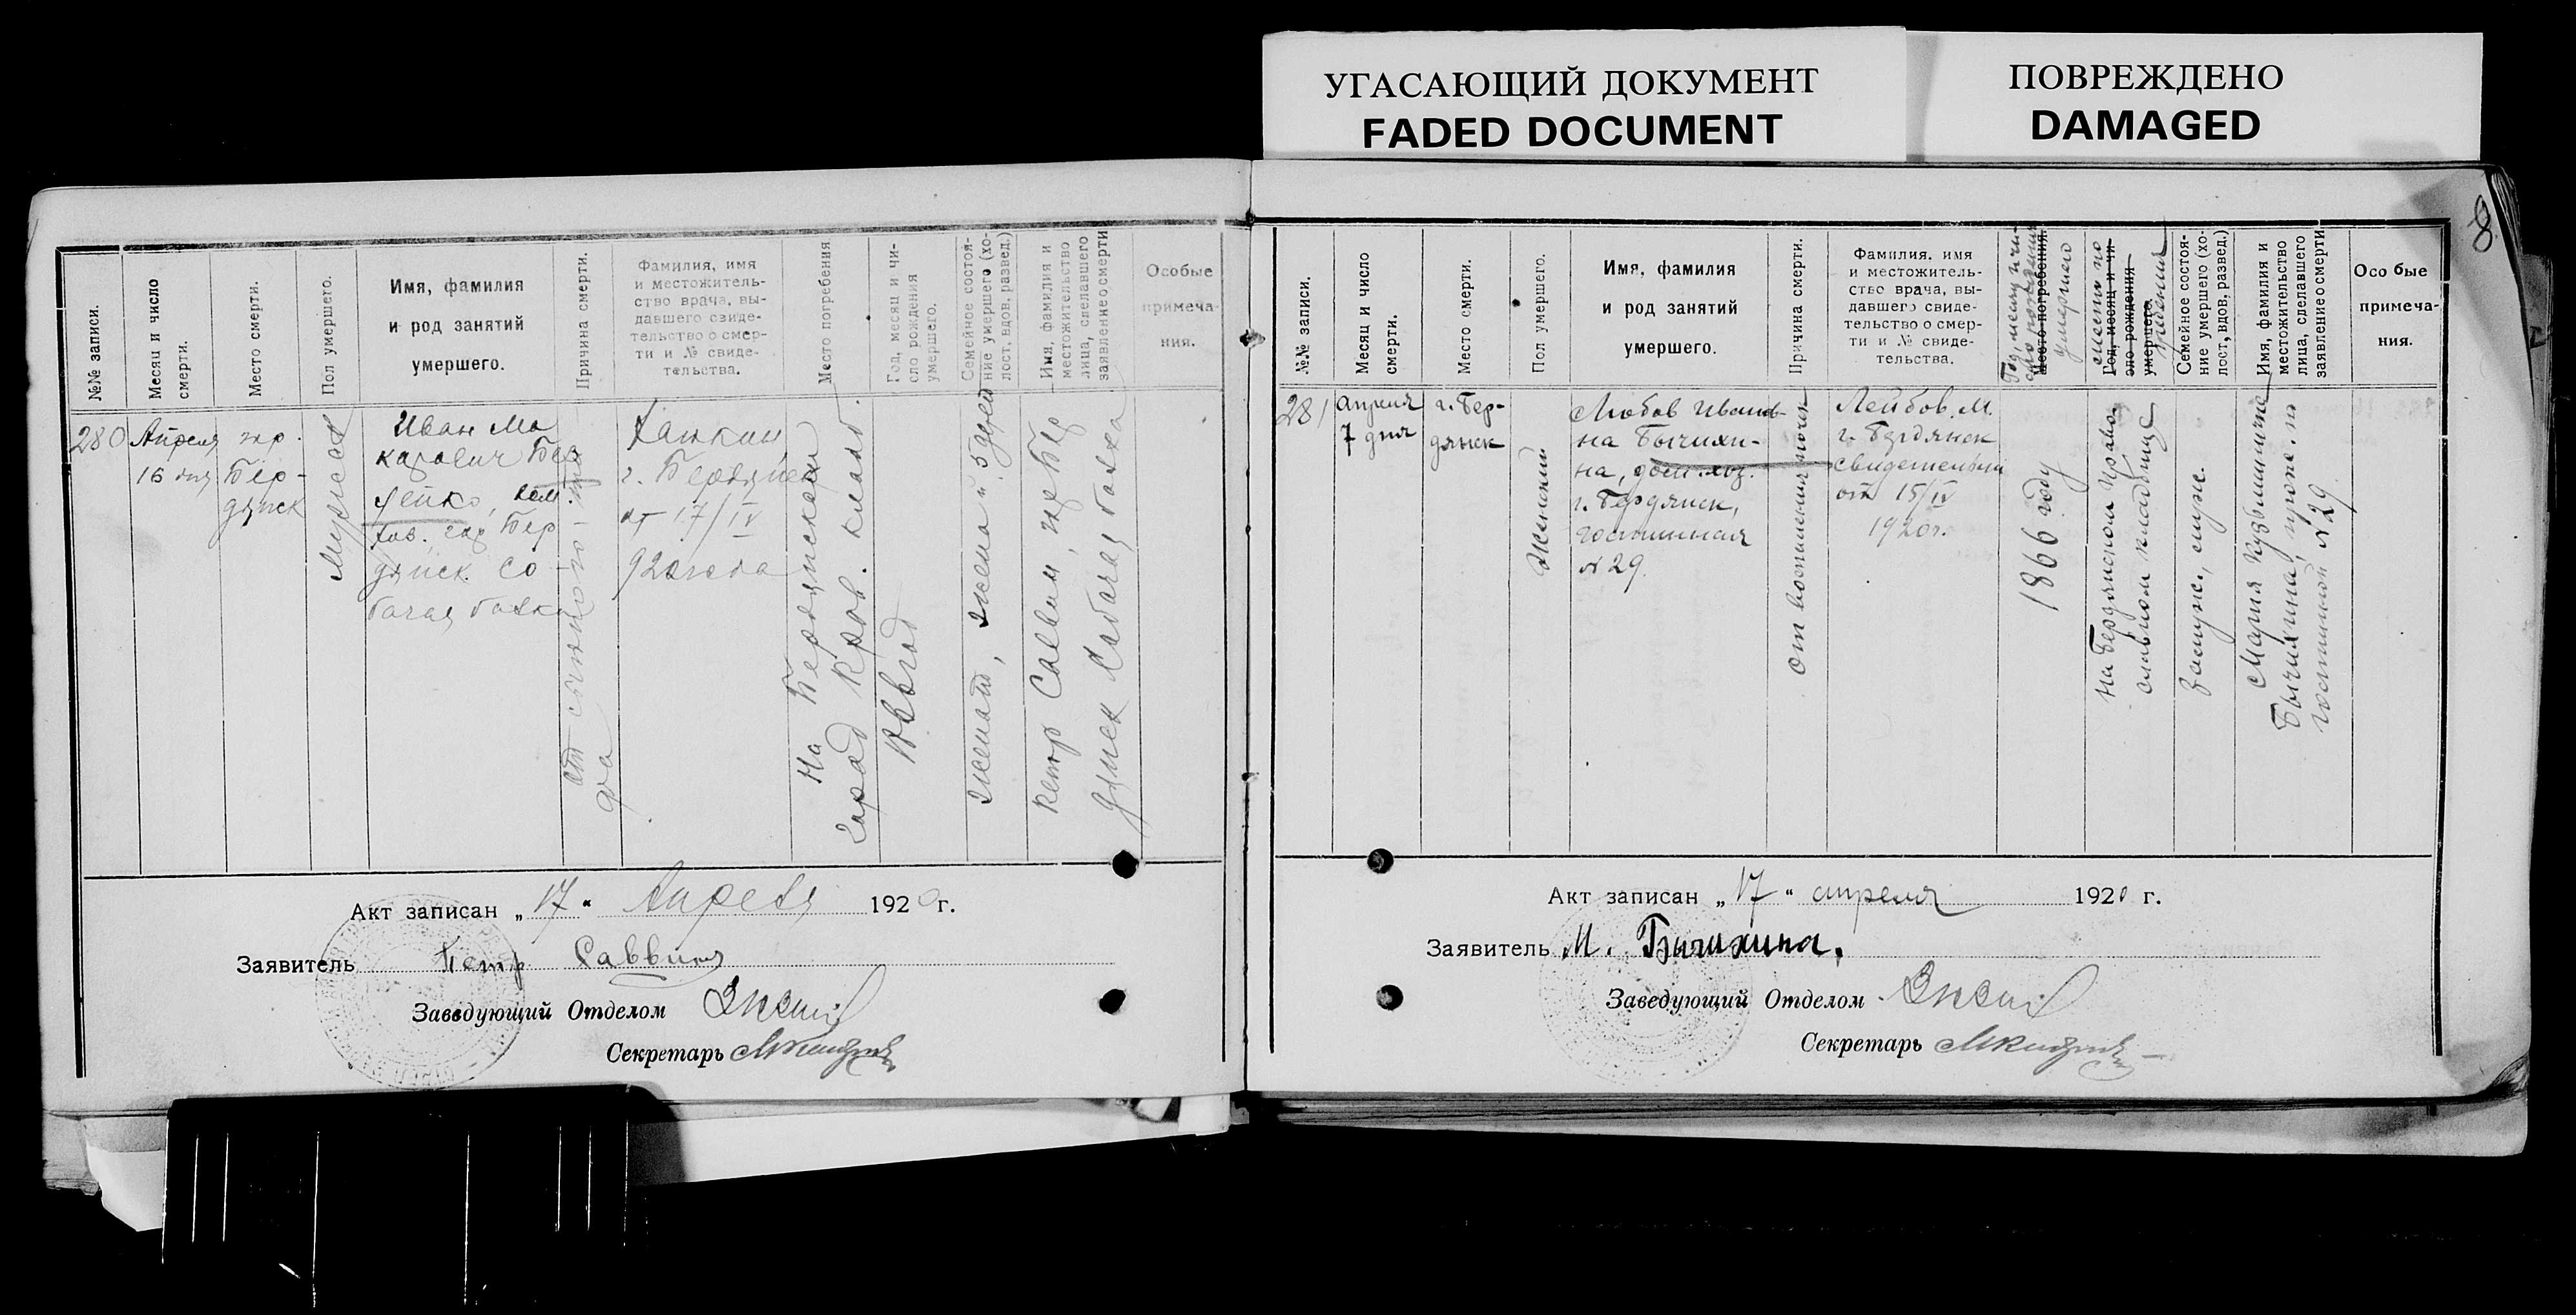 УГАСАЮЩИЙ ДОКУМЕНТ
FADED DOCUMENT
ПОВРЕЖДЕНО
DAMAGED
8
№№ записи.
Месяц и число
смерти.
Место смерти.
Пол умершего.
Имя, фамилия
и род занятий
умершего.
Причина смерти.
Фамилия, имя
и местожитель-
ство врача, вы-
давшего свиде-
тельство о смер-
ти и № свиде-
тельства.
Место погребения
Год, месяц и чи-
сло рождения
умершего.
Семейное состоя-
ние умершего (хо-
лост, вдов, развед.)
Имя, фамилия и
местожительство
лица, сделавшего
заявление о смерти
Особые
примеча-
ния.
280
Апреля
16 дня
гор.
Бер-
дянск
Иван Ма
карович
гор Бер
дянск. Со
бачая балка
г. Бердянск
от 17/IV
920 года
На Бердянском
город кладб.
женат, жена и 5 детей
Петр Саввин, гор Бер
дянск Собачая балка
Акт записан „17“ Апреля 1920 г.
Заявитель Петр Саввин
Заведующий Отделом
Секретарь
№№ записи.
Месяц и число
смерти.
Место смерти.
Пол умершего.
Имя, фамилия
и род занятий
умершего.
Причина смерти.
Фамилия, имя
и местожитель-
ство врача, вы-
давшего свиде-
тельство о смер-
ти и № свиде-
тельства.
Место погребения.
Год, месяц и чи-
сло рождения
умершего
Год, месяц и чи-
сло рождения
умершего.
место по
гребения
Семейное состоя-
ние умершего (хо-
лост, вдов, развед.)
Имя, фамилия и
местожительство
лица, сделавшего
заявление о смерти.
Особые
примеча-
ния.
281
апреля
7 дня
г. Бер-
дянск
Женский
Любов Иванов-
на Бычихи-
на, дом. хоз.
г. Бердянск,
гостинная
№ 29.
От воспаления почек
Лейбов. М.
г. Бердянск
свидетельство
от 15/IV
1920 г.
1866 году
на Бердянском Право
славном кладбище
замуж., муж.
Мария Кузьминишна
Бычихина, прож. по
гостинной № 29.
Акт записан „17“ апреля 1920 г.
Заявитель М. Бычихина.
Заведующий Отделом
Секретарь